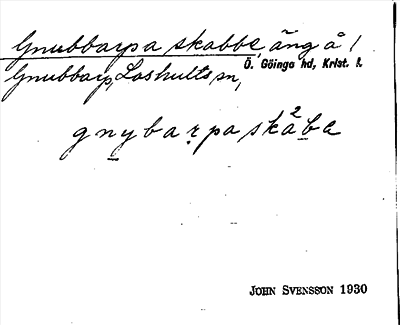 Gnubbarpa skabbe, äng å /
Ö. Göinge hd, Krist. l.
Gnubbarp, Loshults sn,
gnybarpaskàba
2
JOHN SVENSSON 1930